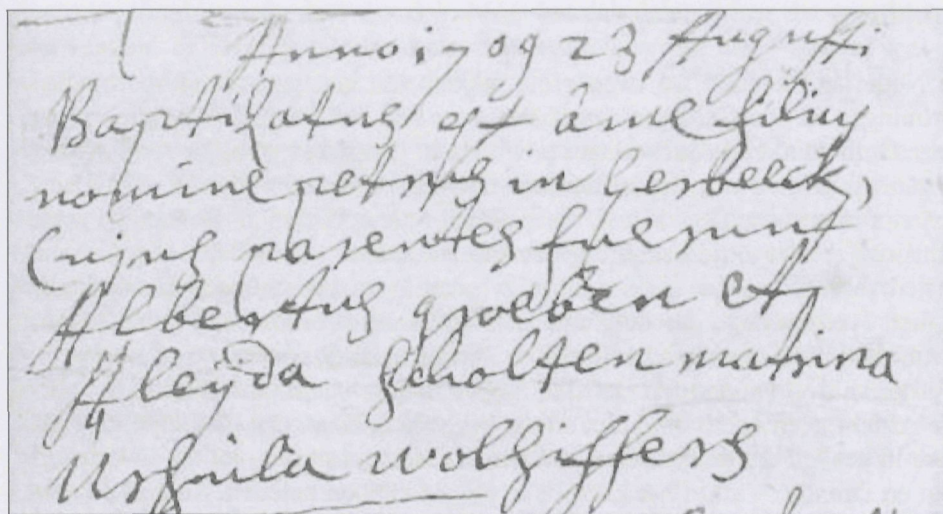 Anno 1709 23 Augusti
Baptizatus est a me filius
nomine petrus in lerbeeck,
Cujus parentes fuerunt
Albertus groeben et
Aleÿda scholten matrina
Ursula wolssiffers